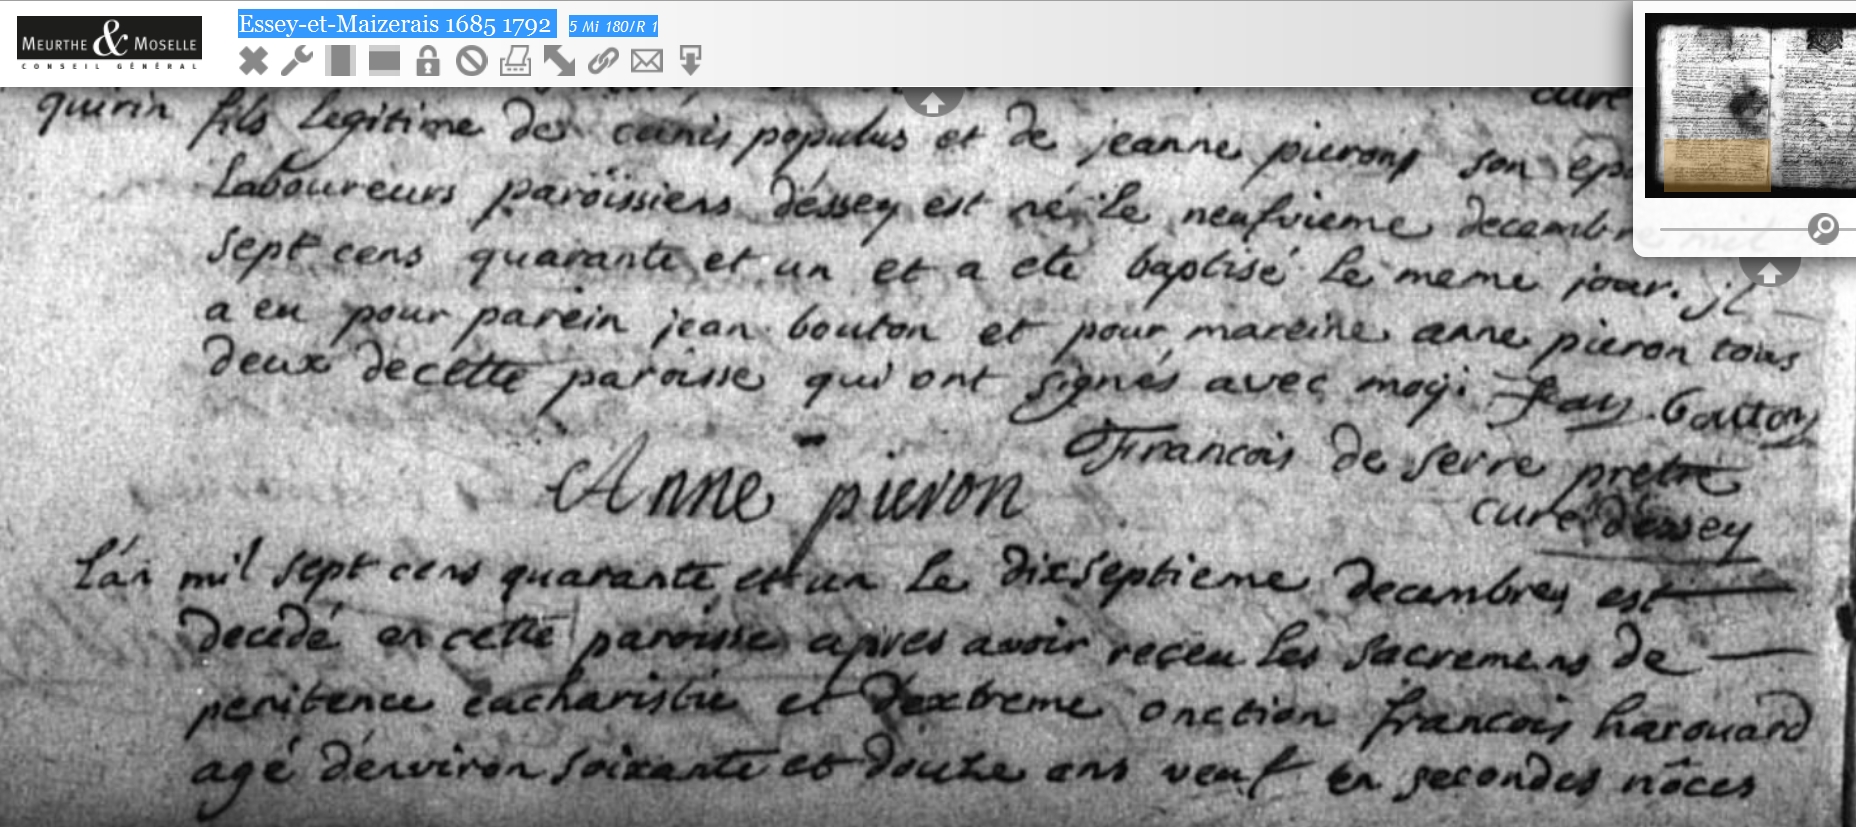 MEURTHE & MOSELLE
CONSEIL GÉNÉRAL
Essey-et-Maizerais 1685 1792 5 Mi 180/R 1
quirin fils legitime de canis populus et de jeanne pierons son
laboureurs paroissiens dessey est né le neufvieme decembre mil
sept cens quarante et un et a eté baptisé le meme jour. jl
a eu pour parein jean bouton et pour mareine anne pieron tous
deux de cette paroisse qui ont signés avec moÿ. Jean Bouton
Francois de serre pretre
Anne pieron
curé dessey
L'an mil sept cens quarante et un le dixseptieme decembres est
decédé en cette paroisse apres avoir reçeu les sacremens de
penitence eucharistie et dextreme onction francois harouard
agé denviron soixante et douze ans veuf en secondes nôces